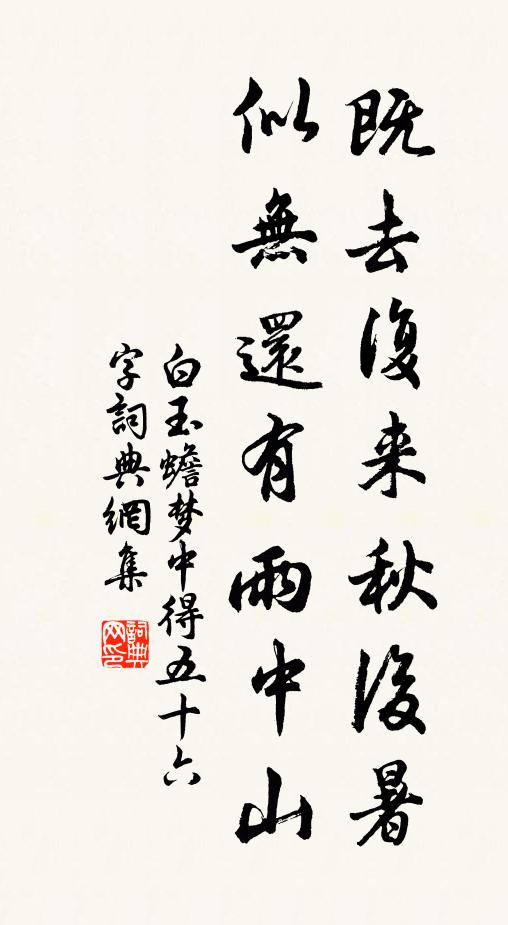 既去復来秋後暑
似無還有雨中山
白玉蟾梦中得五十六
字詞典網集
詞典
网印